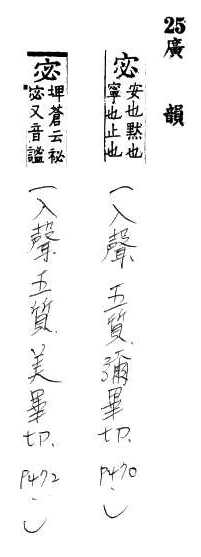 25廣韻
宓 安也默也寧也止也
一入聲.五質.彌畢切.P470.
宓 埤蒼云祕宓又音謐
一入聲.五質.美畢切.P472.